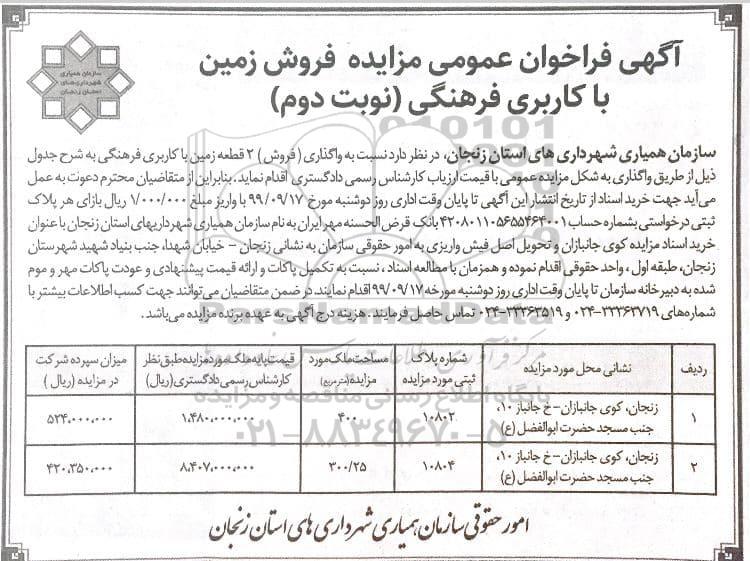 سازمان همیاری
شهرداری‌های
استان زنجان
آگهی فراخوان عمومی مزایده فروش زمین
با کاربری فرهنگی (نوبت دوم)
سازمان همیاری شهرداری های استان زنجان، در نظر دارد نسبت به واگذاری (فروش) ۲ قطعه زمین با کاربری فرهنگی به شرح جدول
ذیل از طریق واگذاری به شکل مزایده عمومی با قیمت ارزیاب کارشناس رسمی دادگستری اقدام نماید. بنابراین از متقاضیان محترم دعوت به عمل
می‌آید جهت خرید اسناد از تاریخ انتشار این آگهی تا پایان وقت اداری روز دوشنبه مورخ ۹۹/۰۹/۱۷ با واریز مبلغ ۱/۰۰۰/۰۰۰ ریال بازای هر پلاک
ثبتی درخواستی بشماره حساب ۴۲۰۸۰۱۱۰۵۶۵۵۴۶۴۰۰۱ بانک قرض‌الحسنه مهر ایران به نام سازمان همیاری شهرداریهای استان زنجان با عنوان
خرید اسناد مزایده کوی جانبازان و تحویل اصل فیش واریزی به امور حقوقی سازمان به نشانی زنجان - خیابان شهدا، جنب بنیاد شهید شهرستان
زنجان، طبقه اول، واحد حقوقی اقدام نموده و همزمان با مطالعه اسناد، نسبت به تکمیل پاکات و ارائه قیمت پیشنهادی و عودت پاکات مهر و موم
شده به دبیرخانه سازمان تا پایان وقت اداری روز دوشنبه مورخه ۹۹/۰۹/۱۷ اقدام نمایند در ضمن متقاضیان می‌توانند جهت کسب اطلاعات بیشتر با
شماره‌های ۳۳۳۶۳۷۱۹-۰۲۴ و ۳۳۳۶۳۵۱۹-۰۲۴ تماس حاصل فرمایند. هزینه درج آگهی به عهده برنده مزایده می‌باشد.
ردیف نشانی محل مورد مزایده شماره پلاک ثبتی مورد مزایده مساحت ملک مورد مزایده (متر مربع) قیمت پایه ملک مورد مزایده طبق نظر کارشناس رسمی دادگستری (ریال) میزان سپرده شرکت در مزایده (ریال)
۱ زنجان، کوی جانبازان - خ جانباز ۱۰، جنب مسجد حضرت ابوالفضل (ع) ۱۰۸۰۲ ۴۰۰ ۱،۴۸۰،۰۰۰،۰۰۰ ۵۲۴،۰۰۰،۰۰۰
۲ زنجان، کوی جانبازان - خ جانباز ۱۰، جنب مسجد حضرت ابوالفضل (ع) ۱۰۸۰۴ ۳۰۰/۲۵ ۸،۴۰۷،۰۰۰،۰۰۰ ۴۲۰،۳۵۰،۰۰۰
امور حقوقی سازمان همیاری شهرداری های استان زنجان
ParsNamadData
پایگاه اطلاع رسانی مناقصه و مزایده
۰۲۱-۸۸۳۴۹۶۷۰-۵